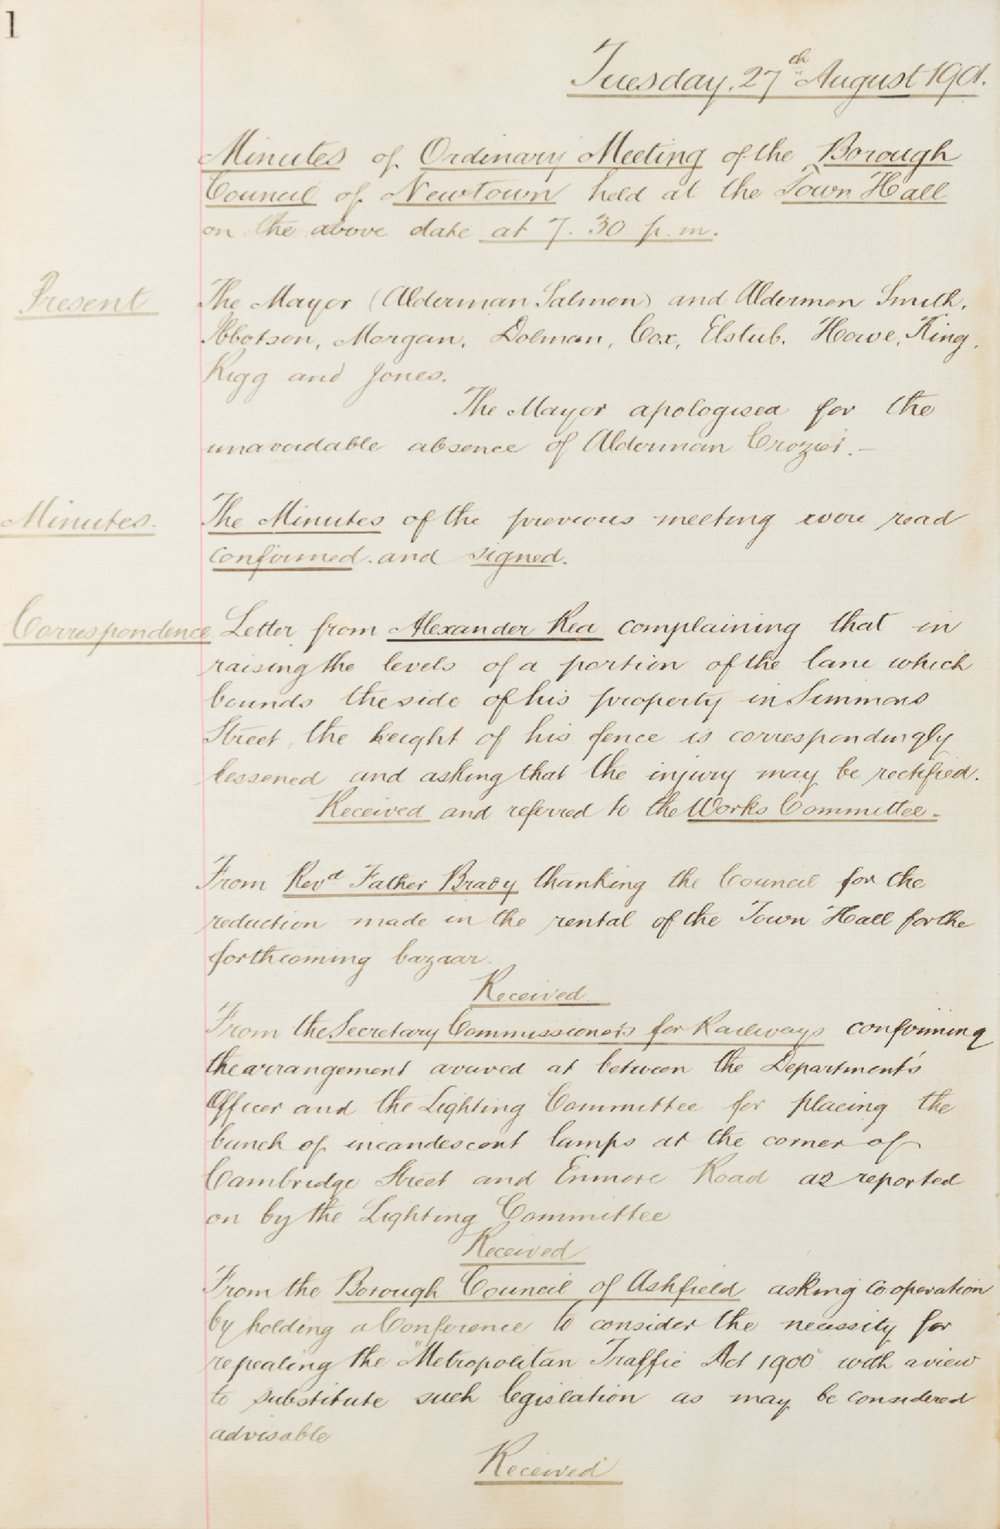 1
Tuesday, 27th August 1901.
Minutes of Ordinary Meeting of the Borough
Council of Newtown held at the Town Hall
on the above date at 7.30 p.m.
Present The Mayor (Alderman Salmon) and Aldermen Smith,
Ibbotson, Morgan, Dolman, Cox, Elstub, Howe, King,
Rigg and Jones.
The Mayor apologised for the
unavoidable absence of Alderman Crozier.—
Minutes. The Minutes of the previous meeting were read
confirmed and signed.
Correspondence Letter from Alexander Rea complaining that in
raising the levels of a portion of the lane which
bounds the side of his property in Simmons
Street, the height of his fence is correspondingly
lessened and asking that the injury may be rectified.
Received and referred to the Works Committee.
From Revd Father Brady thanking the Council for the
reduction made in the rental of the Town Hall for the
forthcoming bazaar.
Received
From the Secretary Commissioners for Railways confirming
the arrangement arrived at between the Department's
Officer and the Lighting Committee for placing the
bunch of incandescent lamps at the corner of
Cambridge Street and Enmore Road as reported
on by the Lighting Committee
Received
From the Borough Council of Ashfield asking co operation
by holding a Conference to consider the necessity for
repealing the "Metropolitan Traffic Act 1900" with a view
to substitute such legislation as may be considered
advisable
Received